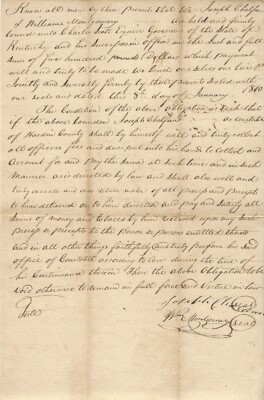 Know all men by these Presents that We Joseph Chelf
& William Montgomery Are held and firmly
bound unto Charles Scott Esquire Governor of the State of
Kentucky and his Successors in office in the Just and full
Sum of five hundred Pounds to the which Payment
well and truly to be made we bind our selves our heirs &c
Jointly and Severally firmly by these presents Sealed with
our seals and dated this 8th day of January 1810
The Condition of the above Obligation is Such that
if the above bounden Joseph Chelf as constable
of Hardin County shall by himself well and truly collect
all officers fees and dues put into his hands to Collect and
Account for and Pay the same at such times and in such
Manner as is directed by law and Shall also well and
truly execute and due return make of all process and Precepts
to him directed and pay and satisfy all
Sums of money and tobacco by him received upon any such
Process or precepts to the Person or persons entitled thereto
And in all other things faithfully and truly Perform his said
office of Constable according to law during the time of
his Continuance therein Then the above Obligation to be
Void otherwise to remain in full force and Virtue in law
Teste Joseph Chelf Seal
Wm Montgomery Seal